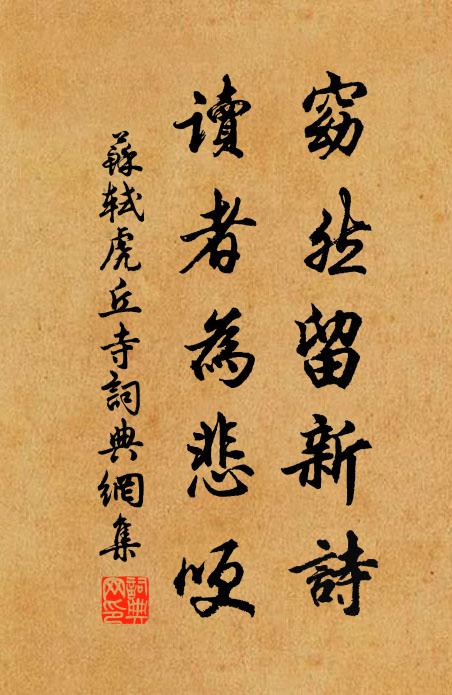 窈然留新詩
讀者為悲哽
蘇軾虎丘寺詞典網集
詞典
网印